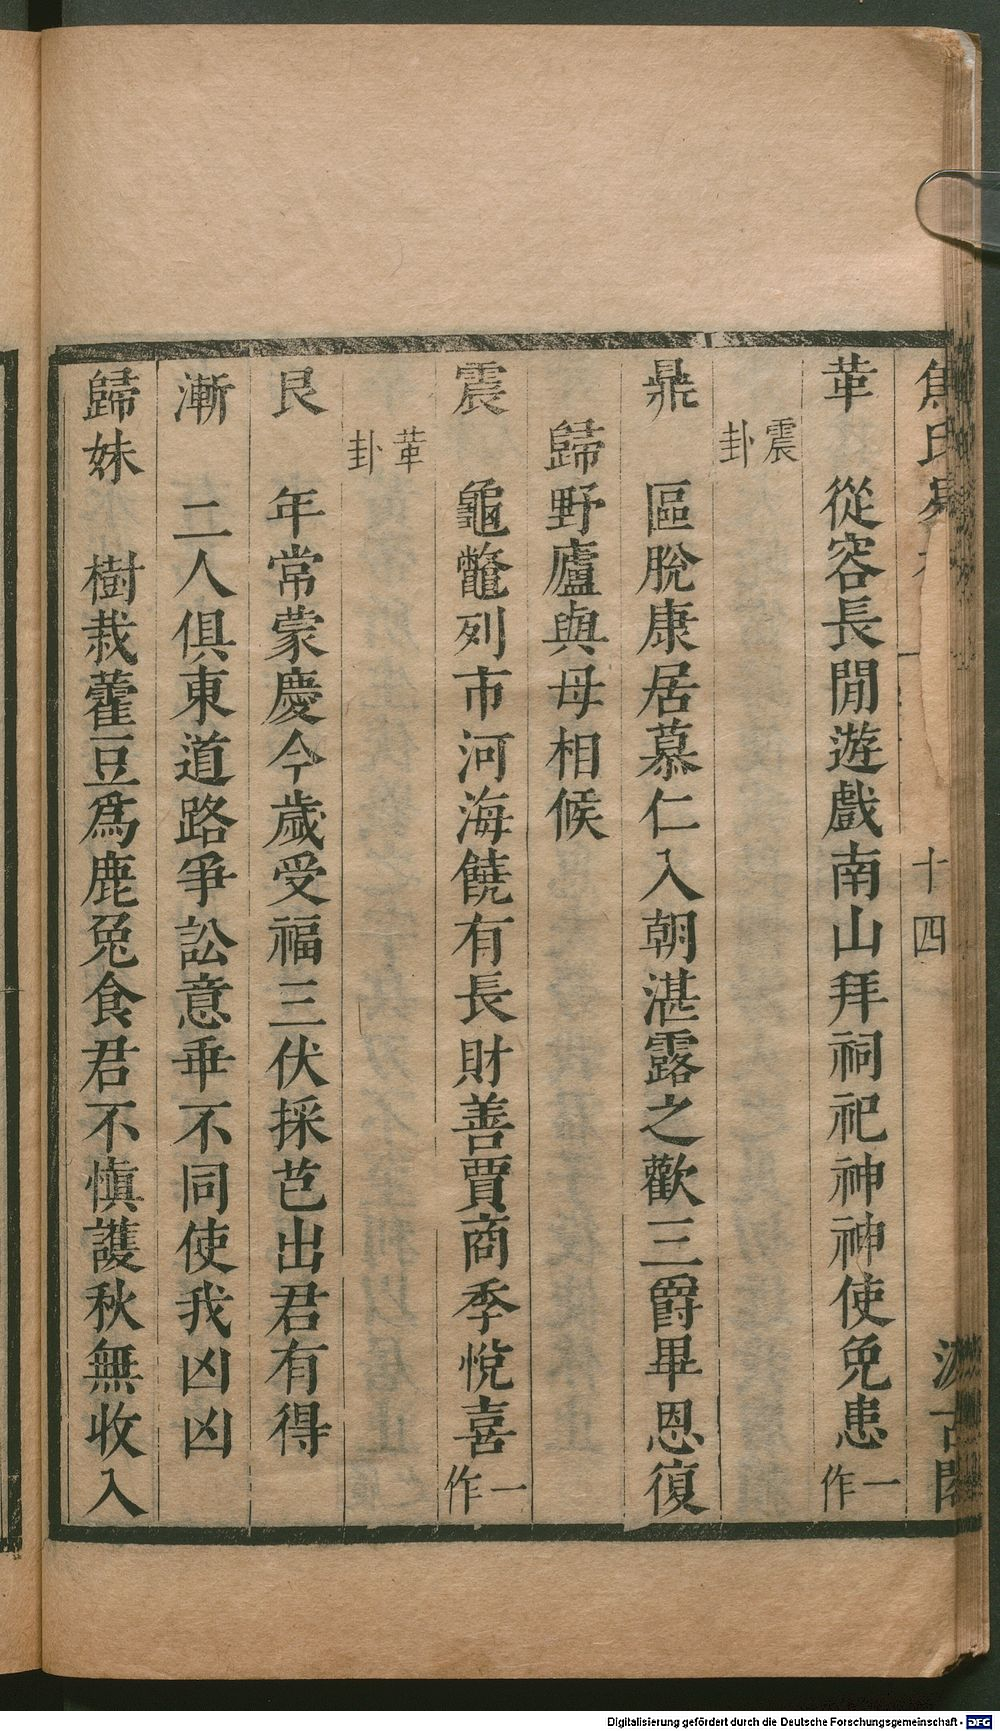 焦氏易
十四
汲古閣
革 從容長閒遊戲南山拜祠祀神神使免患一作
震卦
鼎 區脫康居慕仁入朝湛露之歡三爵畢恩復
歸野廬與母相候
震 龜鼈列市河海饒有長財善賈商季悅喜一作
革卦
艮 年常蒙慶今歲受福三伏採芑出君有得
漸 二人俱東道路爭訟意乖不同使我凶凶
歸妹 樹栽藿豆為鹿兔食君不慎護秋無收入
Digitalisierung gefördert durch die Deutsche Forschungsgemeinschaft - DFG